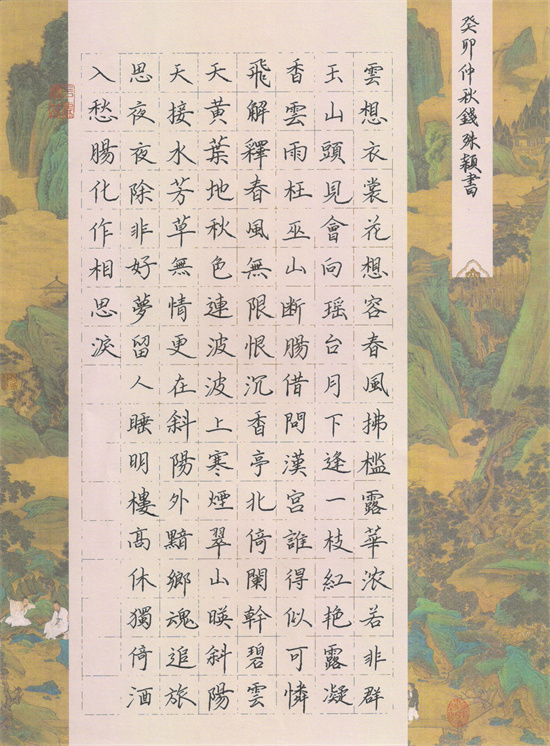 癸卯仲秋錢殊穎書
雲想衣裳花想容春風拂檻露華浓若非群
玉山頭見會向瑶台月下逢一枝紅艳露凝
香雲雨枉巫山断腸借問漢宮誰得似可憐
飛解釋春風無限恨沉香亭北倚闌幹碧雲
天黄葉地秋色連波波上寒煙翠山暎斜陽
天接水芳草無情更在斜陽外黯鄉魂追旅
思夜夜除非好夢留人睡明樓高休獨倚酒
入愁腸化作相思淚